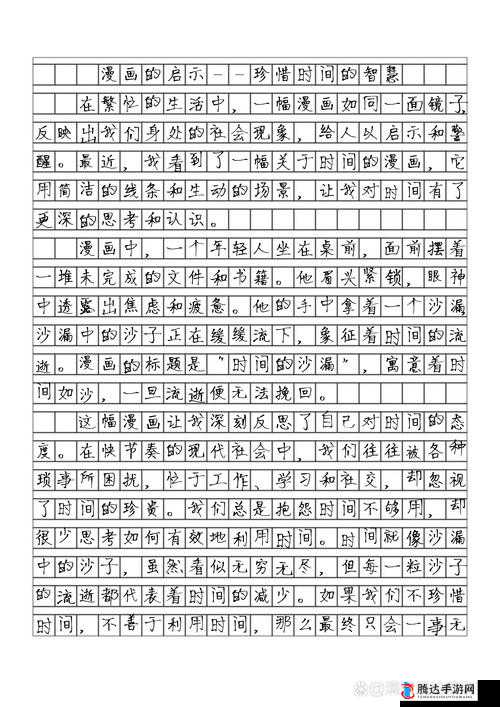 漫画的启示--珍惜时间的智慧
在繁忙的生活中，一幅漫画如同一面镜子，
反映出我们身处的社会现象，给人以启示和警
醒。最近，我看到了一幅关于时间的漫画，它
用简洁的线条和生动的场景，让我对时间有了
更深的思考和认识。
漫画中，一个年轻人坐在桌前，面前摆着
一堆未完成的文件和书籍。他眉头紧锁，眼神
中透露出焦虑和疲惫。他的手中拿着一个沙漏
沙漏中的沙子正在缓缓流下，象征着时间的流
逝。漫画的标题是"时间的沙漏"，寓意着时
间如沙，一旦流逝便无法挽回。
这幅漫画让我深刻反思了自己对时间的态
度。在快节奏的现代社会中，我们往往被各种
琐事所困扰，忙于工作、学习和社交，却忽视
了时间的珍贵。我们总是抱怨时间不够用，却
很少思考如何有效地利用时间。时间就像沙漏
中的沙子，虽然看似无穷无尽，但每一粒沙子
的流逝都代表着时间的减少。如果我们不珍惜
时间，不善于利用时间，那么最终只会一事无
腾达手游网